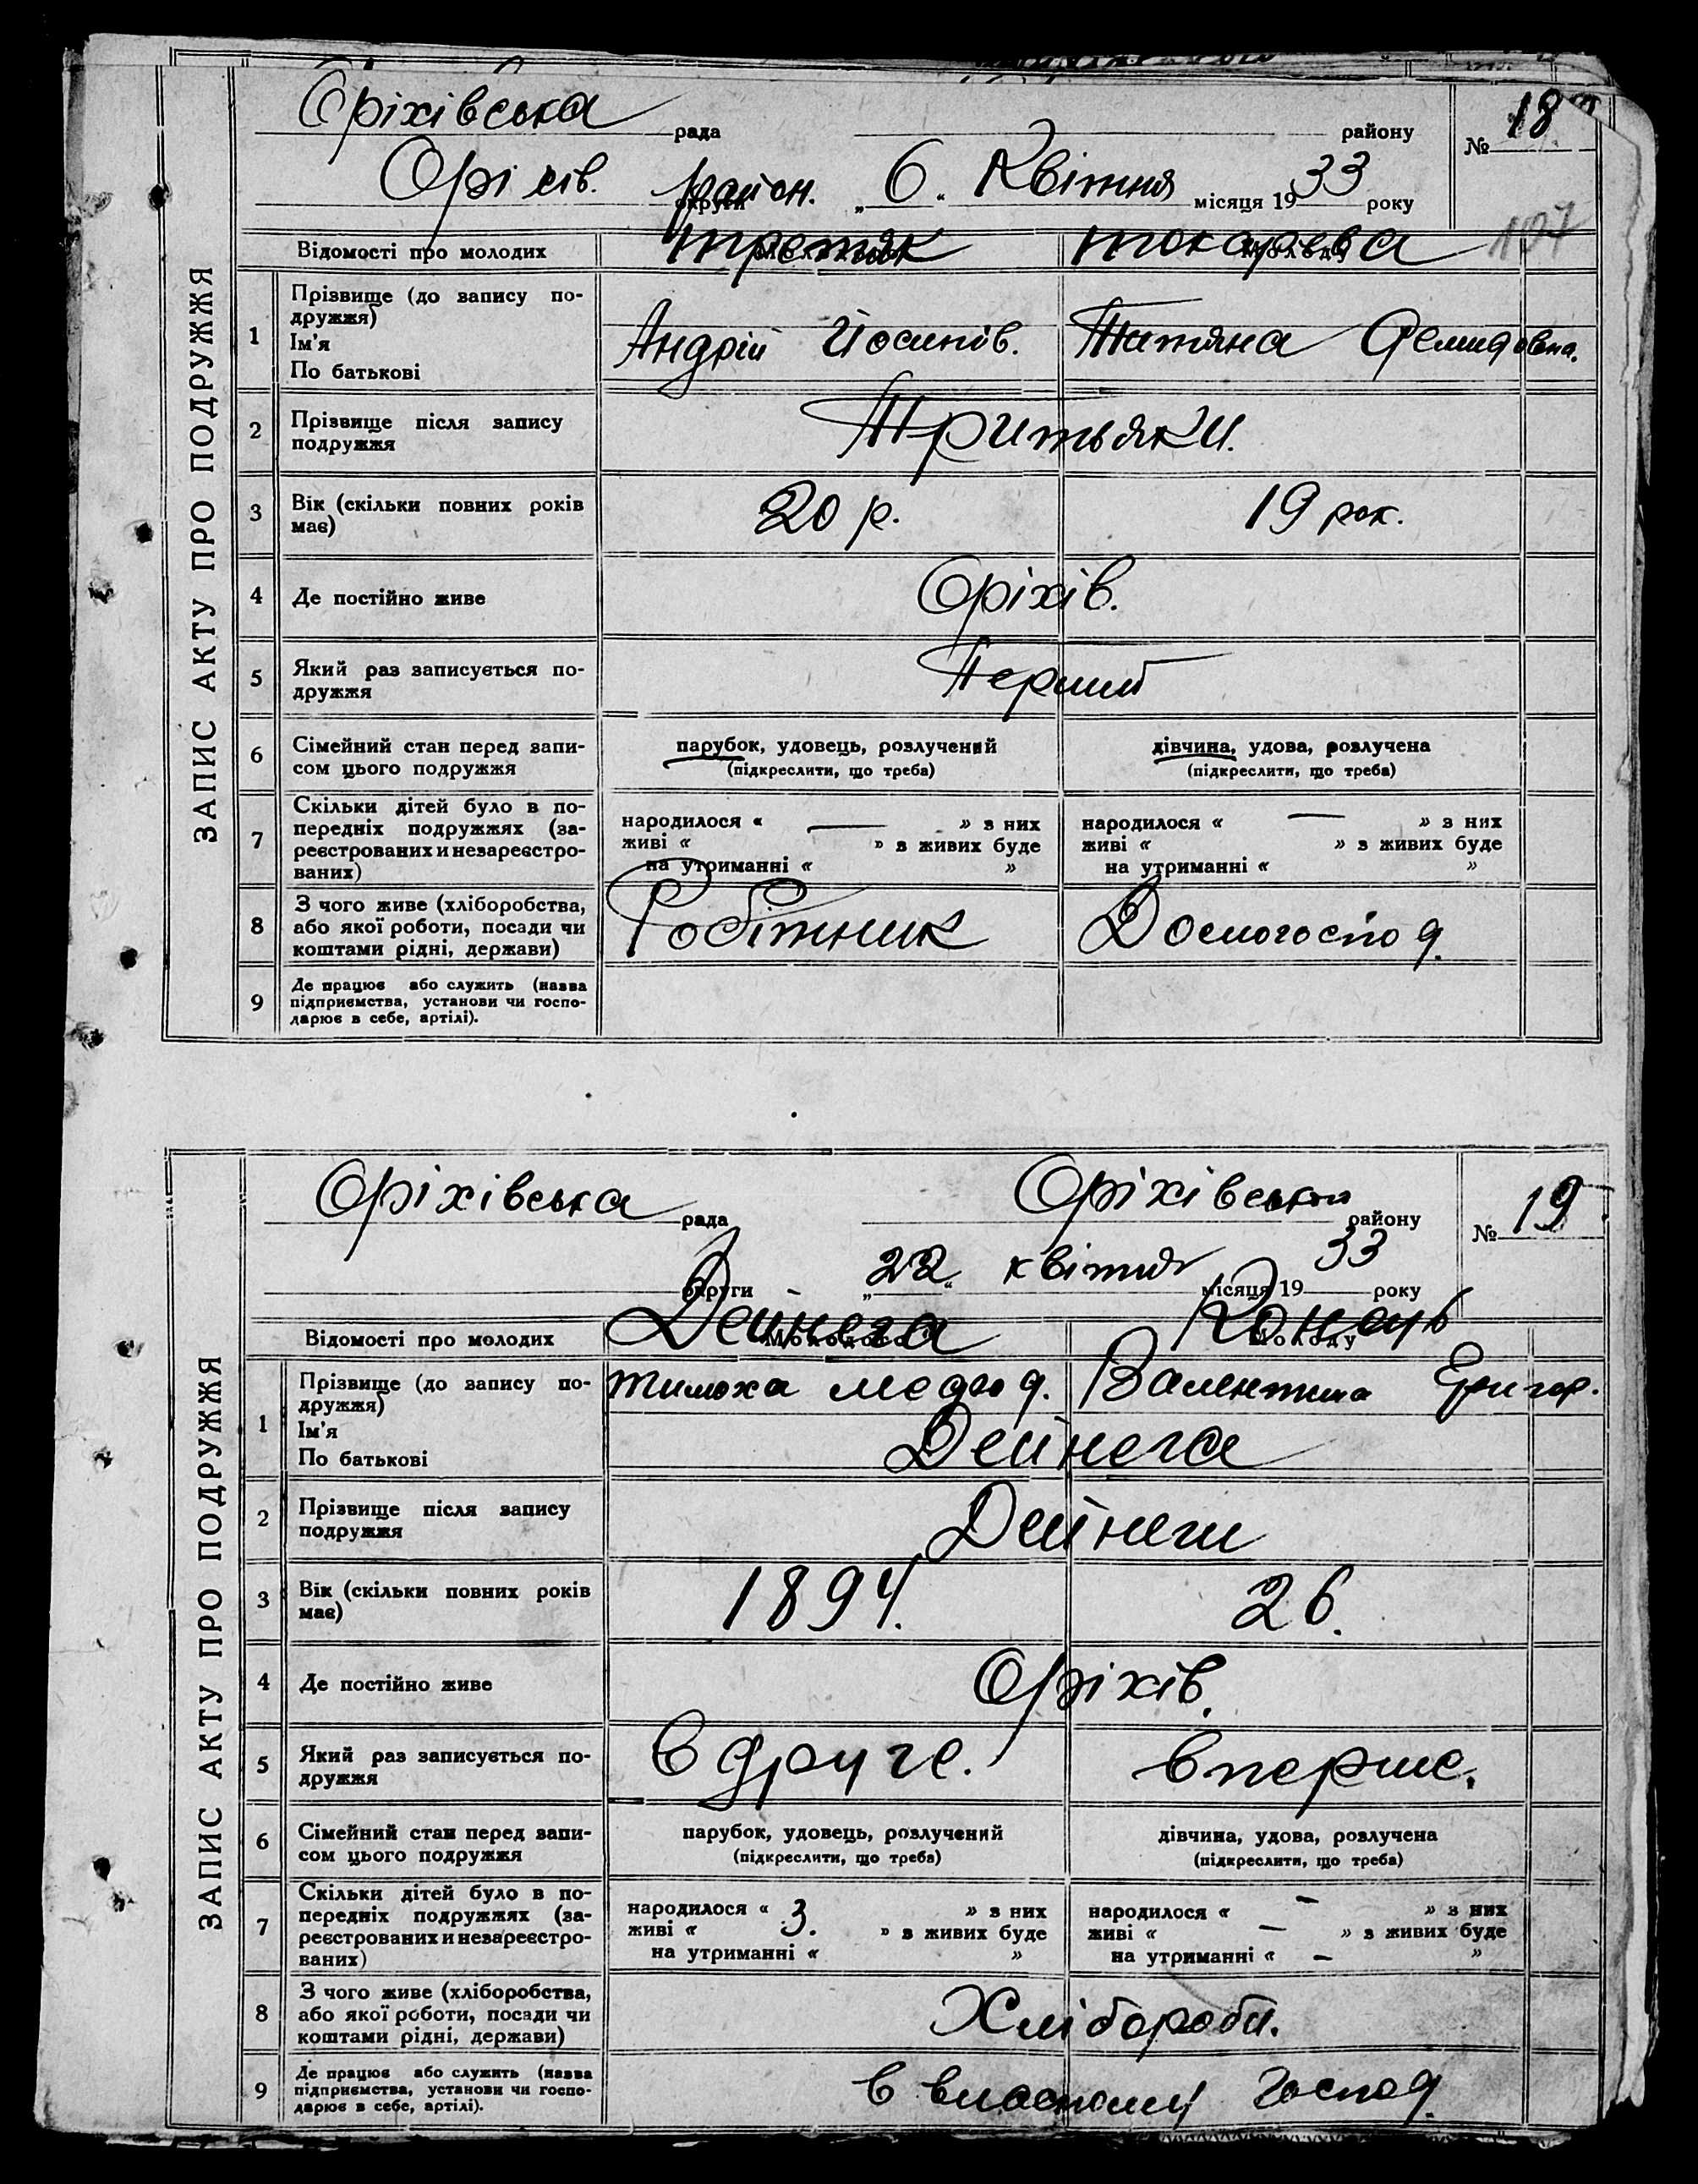 Оріхівська рада району № 18
Оріхів. район. округи „6“ Квітня місяця 1933 року
107
ЗАПИС АКТУ ПРО ПОДРУЖЖЯ
Відомості про молодих Третяк Токарева
1 Прізвище (до запису по-
дружжя)
Ім'я Андрій Йосипів. Титяна Демидовна.
По батькові
2 Прізвище після запису Тритьяки.
подружжя
3 Вік (скільки повних років 20 р. 19 рок.
має)
4 Де постійно живе Оріхів.
5 Який раз записується по- Перший
дружжя
6 Сімейний стан перед запи- парубок, удовець, розлучений дівчина, удова, розлучена
сом цього подружжя (підкреслити, що треба) (підкреслити, що треба)
7 Скільки дітей було в по-
передніх подружжях (за- народилося « — » з них народилося « — » з них
реєстрованих и незареєстро- живі « » з живих буде живі « » з живих буде
ваних) на утриманні « » на утриманні « »
8 З чого живе (хліборобства,
або якої роботи, посади чи Робітник Домогоспод.
коштами рідні, держави)
9 Де працює або служить (назва
підприємства, установи чи госпо-
дарює в себе, артілі).
Оріхівська рада Оріхівського району № 19
округи „22“ квітня місяця 1933 року
ЗАПИС АКТУ ПРО ПОДРУЖЖЯ
Відомості про молодих Дейнега Конець
1 Прізвище (до запису по- Тимоха Мефод. Валентина Григор.
дружжя)
Ім'я Дейнега
По батькові
2 Прізвище після запису Дейнеги
подружжя
3 Вік (скільки повних років 1894. 26.
має)
4 Де постійно живе Оріхів.
5 Який раз записується по- вдруге. вперше.
дружжя
6 Сімейний стан перед запи- парубок, удовець, розлучений дівчина, удова, розлучена
сом цього подружжя (підкреслити, що треба) (підкреслити, що треба)
7 Скільки дітей було в по-
передніх подружжях (за- народилося « 3. » з них народилося « – » з них
реєстрованих и незареєстро- живі « » з живих буде живі « — » з живих буде
ваних) на утриманні « » на утриманні « – »
8 З чого живе (хліборобства,
або якої роботи, посади чи Хлібороби.
коштами рідні, держави)
9 Де працює або служить (назва
підприємства, установи чи госпо- в власному господ.
дарює в себе, артілі).